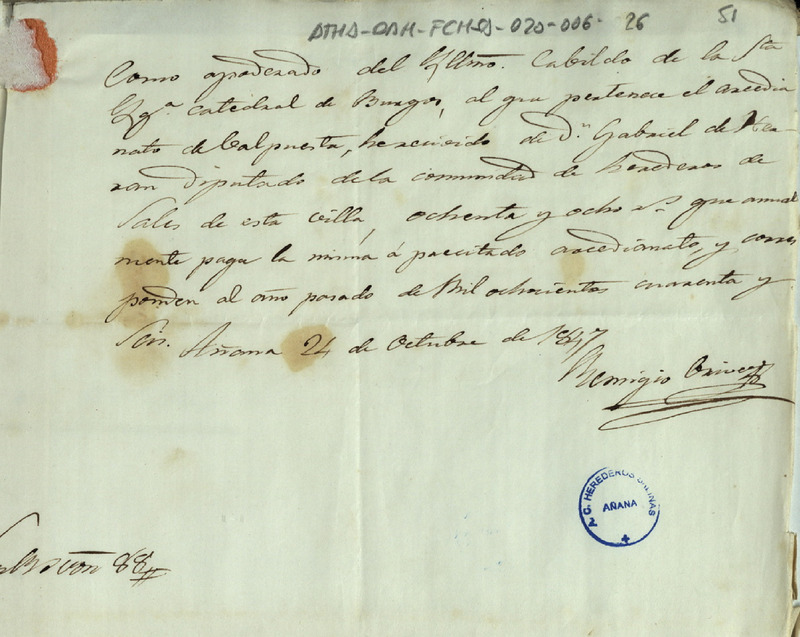 ATHA-DAH-FCHSA-020-006- 26 51
Como apoderado del Yllmo. Cabildo de la Sta
Ygª. catedral de Burgos, al que pertenece el arcedia
nato de Valpuesta, he recivido de Dn. Gabriel de
ran Diputado de la comunidad de herederos de
Sales de esta villa, ochenta y ocho rs. que anual
mente paga la misma á precitado arcedianato, y corres
ponden al año pasado de Mil ochocientos cuarenta y
Seis. Añana 24 de Octubre de 1847
Remigio
C. HEREDEROS SALINAS
AÑANA
88